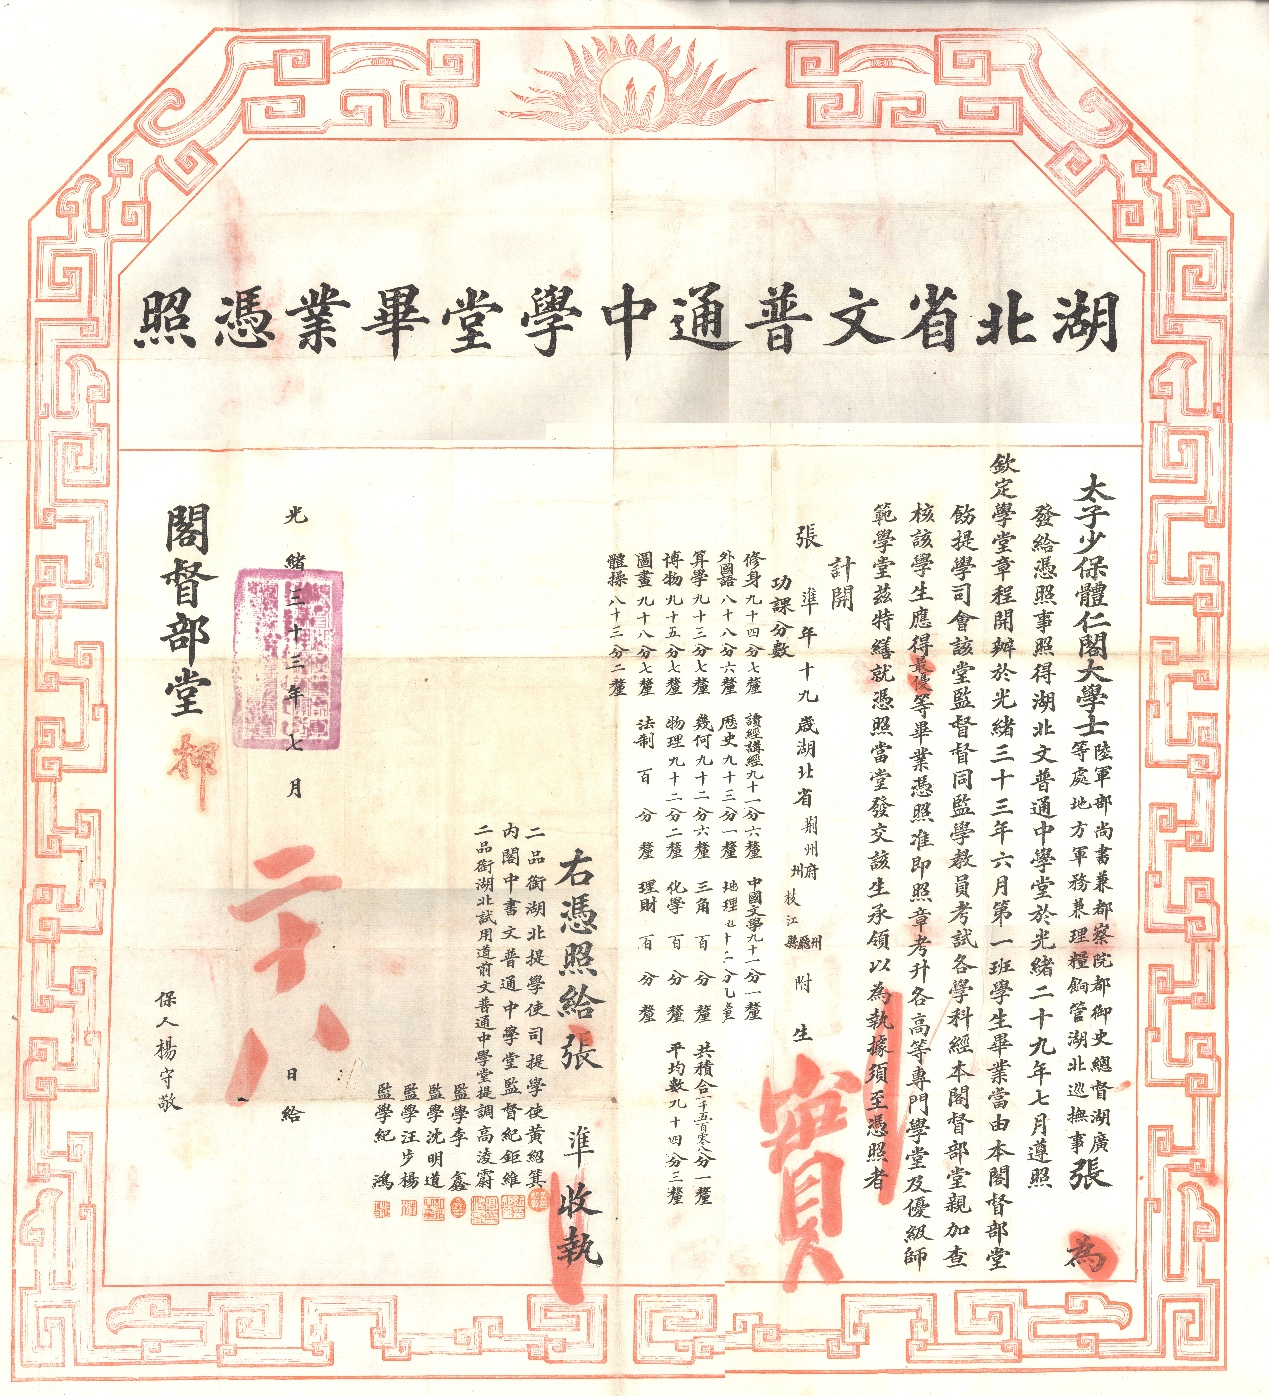 湖北省文普通中學堂畢業憑照
太子少保體仁閣大學士陸軍部尚書兼都察院都御史總督湖廣等處地方軍務兼理糧餉管湖北巡撫事張 為
發給憑照事照得湖北文普通中學堂於光緒二十九年七月遵照
欽定學堂章程開辦於光緒三十三年六月第一班學生畢業當由本閣督部堂
飭提學司會該堂監督督同監學教員考試各學科經本閣督部堂親加查
核該學生應得最優等畢業憑照准即照章考升各高等專門學堂及優級師
範學堂茲特繕就憑照當堂發交該生承領以為執據須至憑照者
計開
張準年十九歲湖北省荊州府州枝江縣州縣附生
功課分數
修身九十四分七釐 讀經講經九十一分六釐 中國文學九十一分一釐
外國語八十八分六釐 歷史九十三分一釐 地理九十二分七釐
算學九十三分七釐 幾何九十二分六釐 三角百分釐 共積合一千五百零八分一釐
博物九十五分七釐 物理九十二分二釐 化學百分釐 平均數九十四分三釐
圖畫九十八分七釐 法制百分釐 理財百分釐
體操八十三分二釐
右憑照給張準收執
二品銜湖北提學使司提學使黃紹箕
內閣中書文普通中學堂監督紀鉅維
二品銜湖北試用道前文普通中學堂提調高淩霨
監學李鑫
監學沈明道
監學汪步楊
監學紀鴻
光緒三十三年七月二十八日給
閣督部堂押
保人楊守敬
實